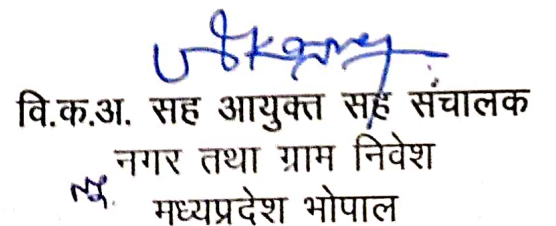 वि.क.अ. सह आयुक्त सह संचालक
नगर तथा ग्राम निवेश
मध्यप्रदेश भोपाल